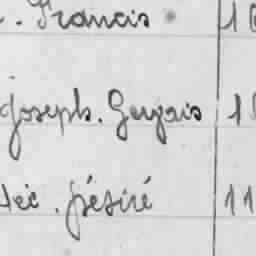 . Francis 1
Joseph. Gervais 1
. Désiré 11